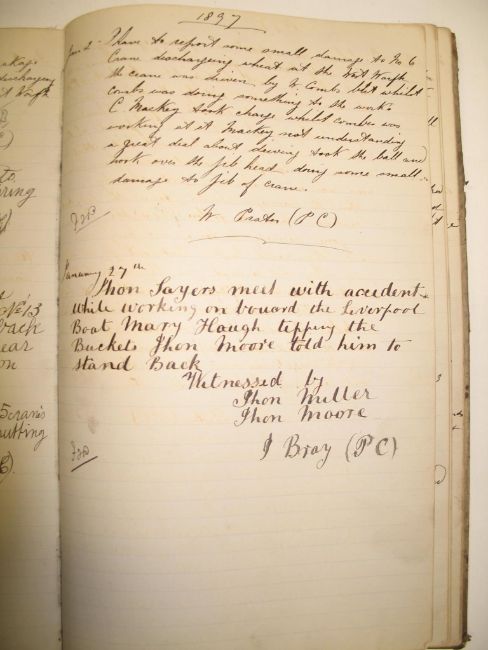 1897
Jan 2 - I have to report some small damage to No 6
Crane discharging wheat at the West Warfh
the crane was driven by W. Combs but whilst
combs was doing something to the works
C. Mackey took charge whilst combs was
working at it Mackey not understanding
a great deal about driving took the ball and
hook over the jeb head doing some small
damage to jib of crane.
W. Prater (PC)
January 27th
Jhon Sayers meet with accedent
while working on bouard the Liverpool
Boat Mary Haugh tepping the
Buckets Jhon Moore told him to
stand Back
Witnessed by
Jhon Miller
Jhon Moore
J Bray (PC)
discharging
ring
No 13
rach
ear
on
5 crans
utting